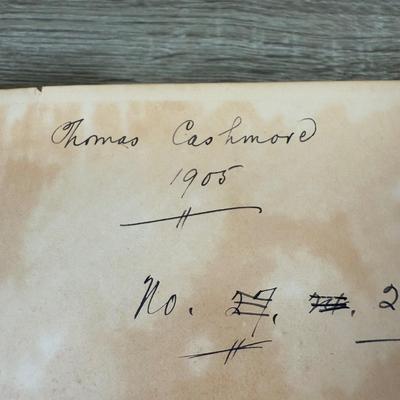 Thomas Cashmore
1905
No. 27. 2